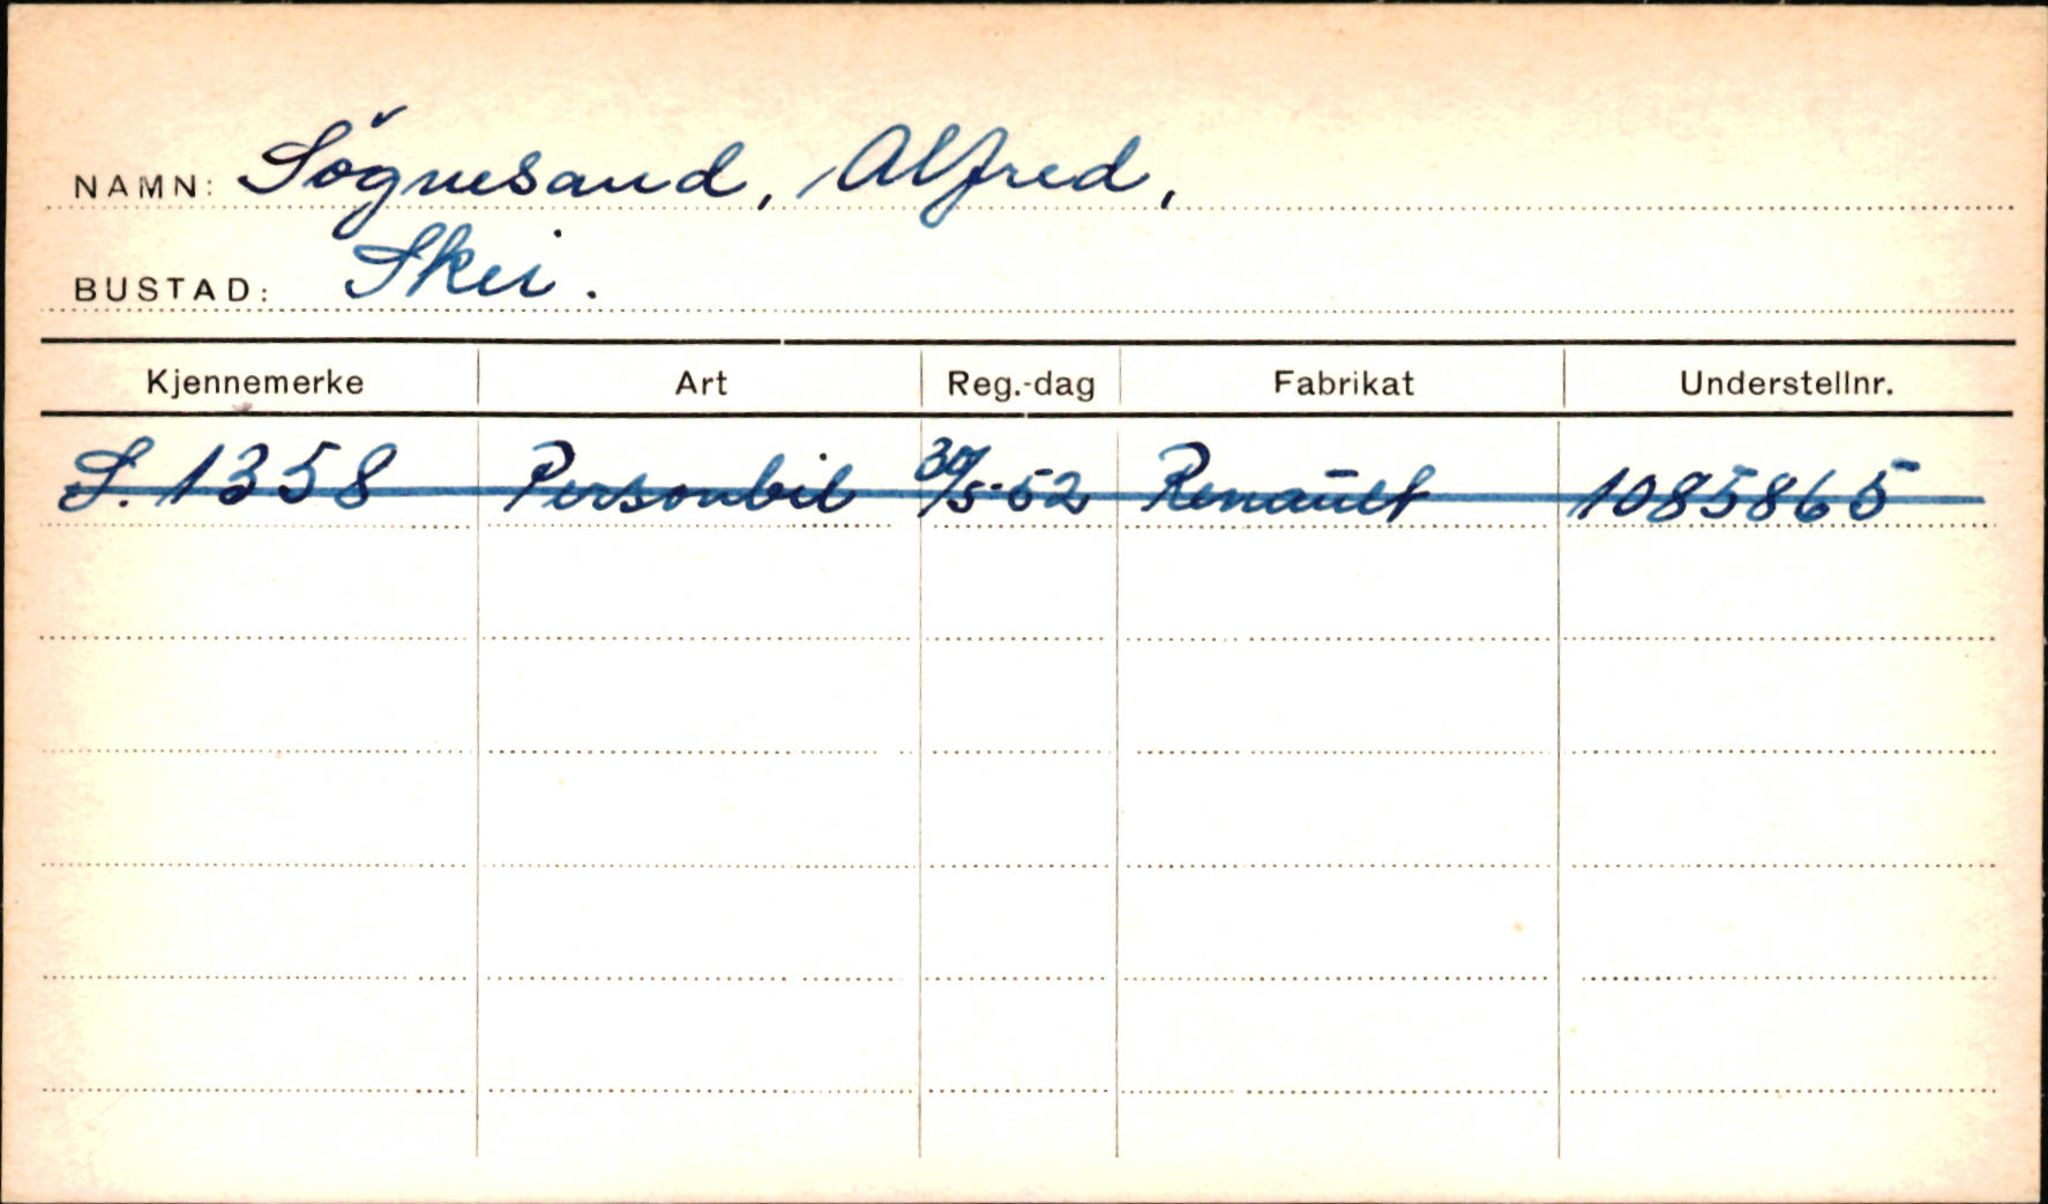 NAMN: Sögnesand, Alfred,
BUSTAD: Skei.
Kjennemerke Art Reg.-dag Fabrikat Understellnr.
S. 1358 Personbil 30/5-52 Renault 1085865